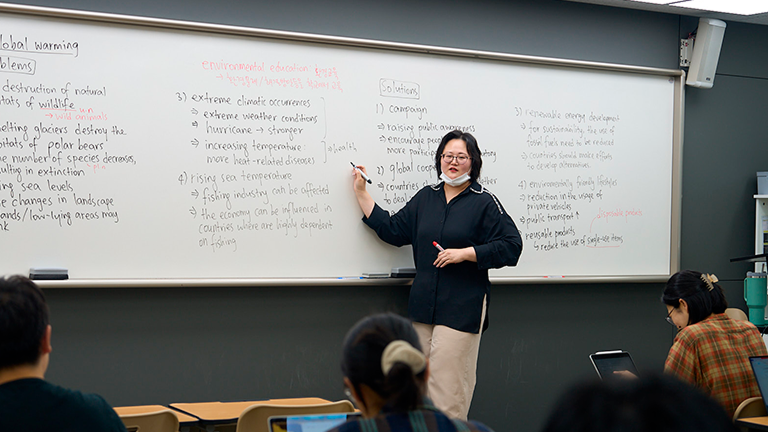 global warming
problems
destruction of natural
habitats of wildlife
→ wild animals
melting glaciers destroy the
habitats of polar bears
the number of species decreases,
resulting in extinction
rising sea levels
changes in landscape
islands/low-lying areas may
sink
environmental education:
3) extreme climatic occurrences
⇒ extreme weather conditions
⇒ hurricane → stronger
⇒ increasing temperature:
more heat-related diseases
→ death
4) rising sea temperature
⇒ fishing industry can be affected
⇒ the economy can be influenced in
countries where are highly dependent
on fishing
Solutions
1) campaign
⇒ raising public awareness
⇒ encourage
more
2) global
⇒ countries
to
3) renewable energy development
⇒ for sustainability, the use of
fossil fuels need to be reduced
⇒ countries should make efforts
to develop alternatives
4) environmentally friendly lifestyles
⇒ reduction in the usage of
private vehicles
⇒ public transport ↑
disposable products
reusable products
↳ reduce the use of single-use items